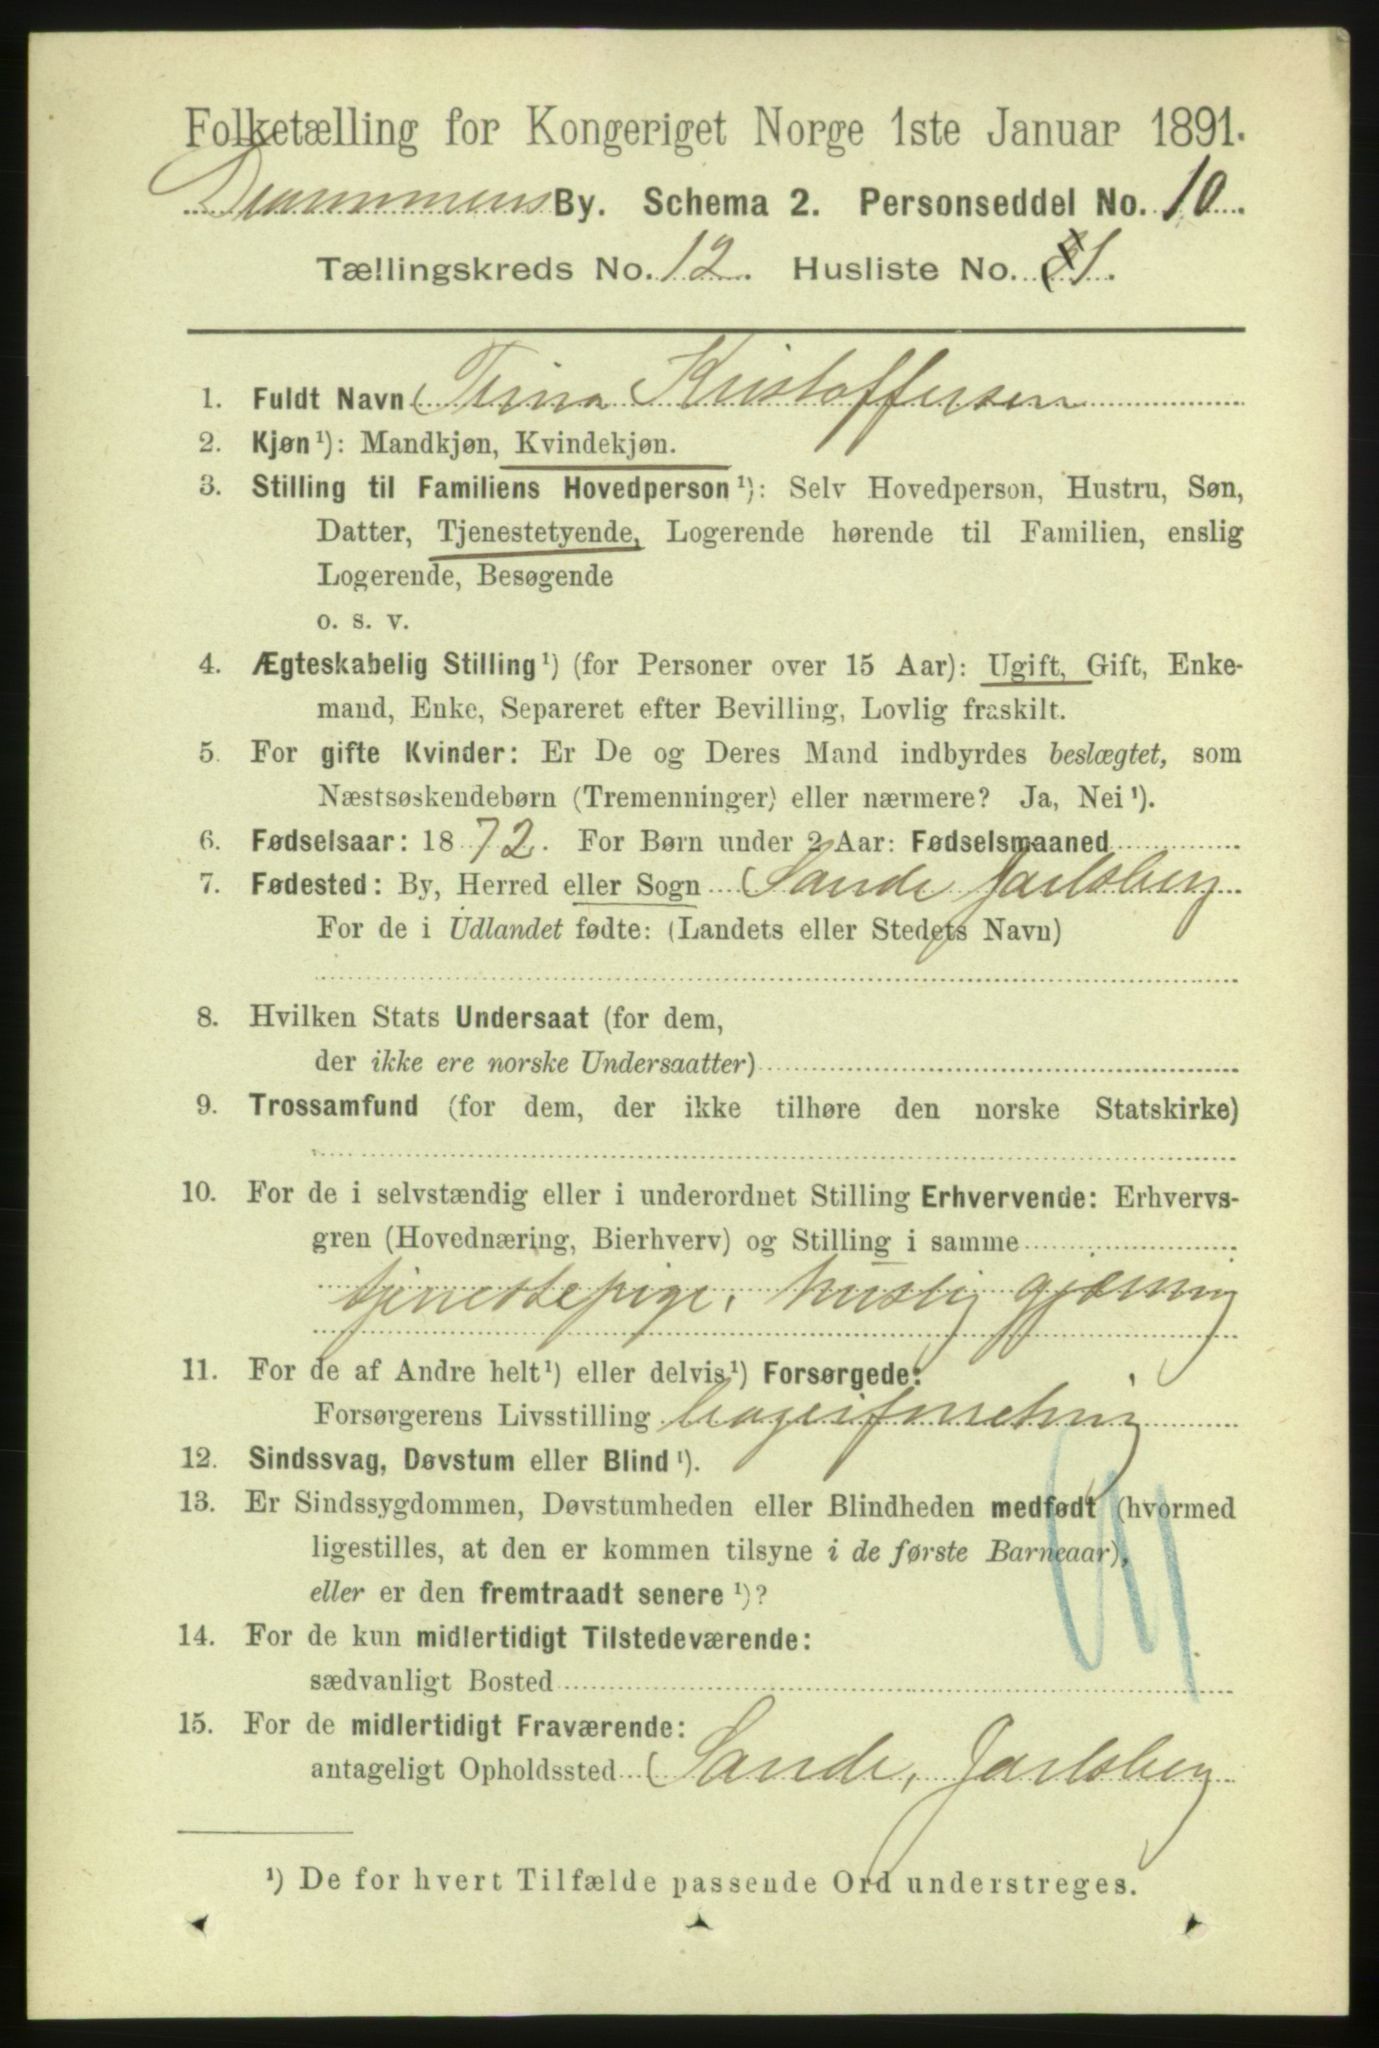 Folketælling for Kongeriget Norge 1ste Januar 1891.
Drammens By. Schema 2. Personseddel No. 10.
Tællingskreds No. 12. Husliste No. 1.
1. Fuldt Navn Trina Kristoffersen
2. Kjøn¹): Mandkjøn, Kvindekjøn.
3. Stilling til Familiens Hovedperson¹): Selv Hovedperson, Hustru, Søn,
Datter, Tjenestetyende, Logerende hørende til Familien, enslig
Logerende, Besøgende
o. s. v.
4. Ægteskabelig Stilling¹) (for Personer over 15 Aar): Ugift, Gift, Enke-
mand, Enke, Separeret efter Bevilling, Lovlig fraskilt.
5. For gifte Kvinder: Er De og Deres Mand indbyrdes beslægtet, som
Næstsøskendebørn (Tremenninger) eller nærmere? Ja, Nei¹).
6. Fødselsaar: 1872. For Børn under 2 Aar: Fødselsmaaned
7. Fødested: By, Herred eller Sogn Sande Jarlsberg
For de i Udlandet fødte: (Landets eller Stedets Navn)
8. Hvilken Stats Undersaat (for dem,
der ikke ere norske Undersaatter)
9. Trossamfund (for dem, der ikke tilhøre den norske Statskirke)
10. For de i selvstændig eller i underordnet Stilling Erhvervende: Erhvervs-
gren (Hovednæring, Bierhverv) og Stilling i samme
tjenestepige, huslig gjærning
11. For de af Andre helt¹) eller delvis¹) Forsørgede:
Forsørgerens Livsstilling bageriforretning
12. Sindssvag, Døvstum eller Blind¹).
13. Er Sindssygdommen, Døvstumheden eller Blindheden medfødt (hvormed
ligestilles, at den er kommen tilsyne i de første Barneaar),
eller er den fremtraadt senere¹)?
14. For de kun midlertidigt Tilstedeværende:
sædvanligt Bosted
15. For de midlertidigt Fraværende:
antageligt Opholdssted Sande, Jarlsberg
¹) De for hvert Tilfælde passende Ord understreges.